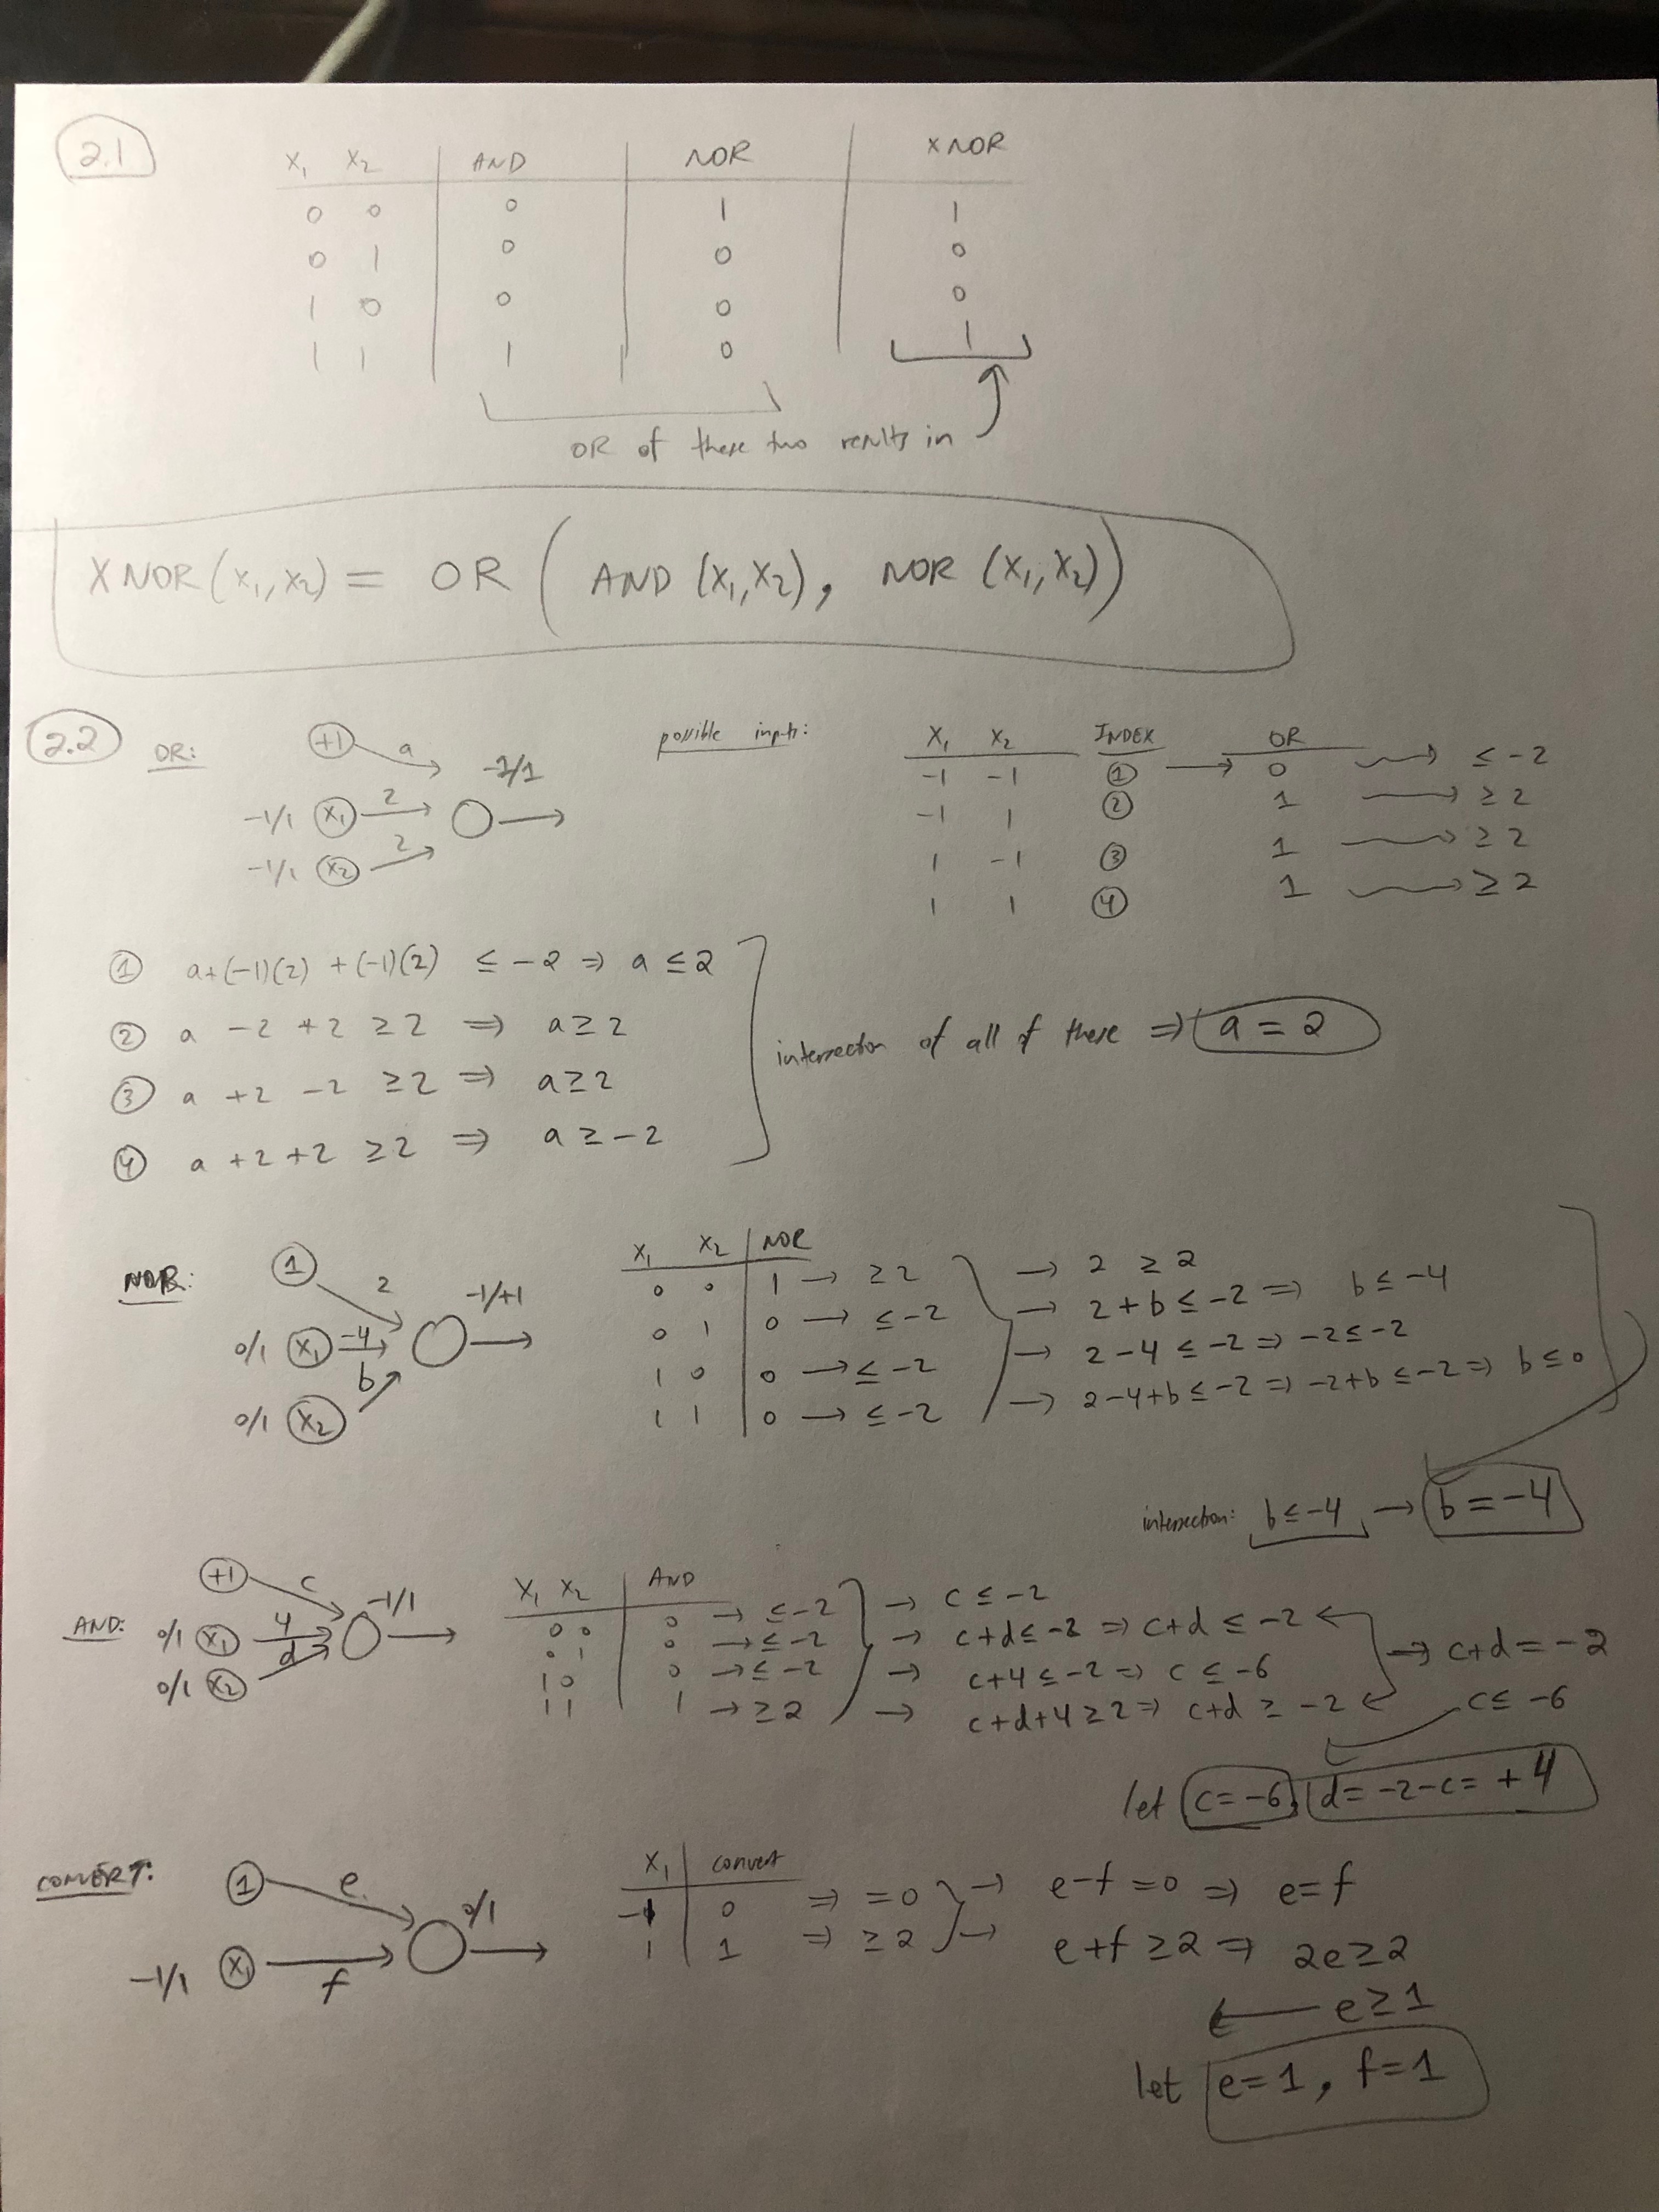 2.1
X₁ X₂ AND NOR XNOR
0 0 0 1 1
0 1 0 0 0
1 0 0 0 0
1 1 1 0 1
OR of these two results in
XNOR(X₁,X₂) = OR ( AND (X₁,X₂), NOR (X₁,X₂))
2.2 OR: +1 a -1/1
-1/1 X₁ 2
-1/1 X₂ 2
possible inputs: X₁ X₂ INDEX OR
-1 -1 ① → 0 → ≤ -2
-1 1 ② 1 → ≥ 2
1 -1 ③ 1 → ≥ 2
1 1 ④ 1 → ≥ 2
① a+(-1)(2) +(-1)(2) ≤ -2 ⇒ a ≤ 2
② a - 2 + 2 ≥ 2 ⇒ a ≥ 2
③ a + 2 - 2 ≥ 2 ⇒ a ≥ 2
④ a + 2 + 2 ≥ 2 ⇒ a ≥ -2
intersection of all of these ⇒ a = 2
NOR: 1 2 -1/+1
0/1 X₁ -4
b
0/1 X₂
X₁ X₂ NOR
0 0 1 → ≥ 2 → 2 ≥ 2
0 1 0 → ≤ -2 → 2+b ≤ -2 ⇒ b ≤ -4
1 0 0 → ≤ -2 → 2-4 ≤ -2 ⇒ -2 ≤ -2
1 1 0 → ≤ -2 → 2-4+b ≤ -2 ⇒ -2+b ≤ -2 ⇒ b ≤ 0
intersection: b ≤ -4 → b = -4
AND: +1 c -1/1
0/1 X₁ 4
0/1 X₂ d
X₁ X₂ AND
0 0 0 → ≤ -2 → c ≤ -2
0 1 0 → ≤ -2 → c+d ≤ -2 ⇒ c+d ≤ -2
1 0 0 → ≤ -2 → c+4 ≤ -2 ⇒ c ≤ -6
1 1 1 → ≥ 2 → c+d+4 ≥ 2 ⇒ c+d ≥ -2
→ c+d = -2
c ≤ -6
let c = -6, d = -2-c = +4
CONVERT: 1 e 0/1
-1/1 X₁ f
X₁ convert
-1 0 ⇒ = 0 → e-f = 0 ⇒ e = f
1 1 ⇒ ≥ 2 → e+f ≥ 2 ⇒ 2e ≥ 2
← e ≥ 1
let e = 1, f = 1